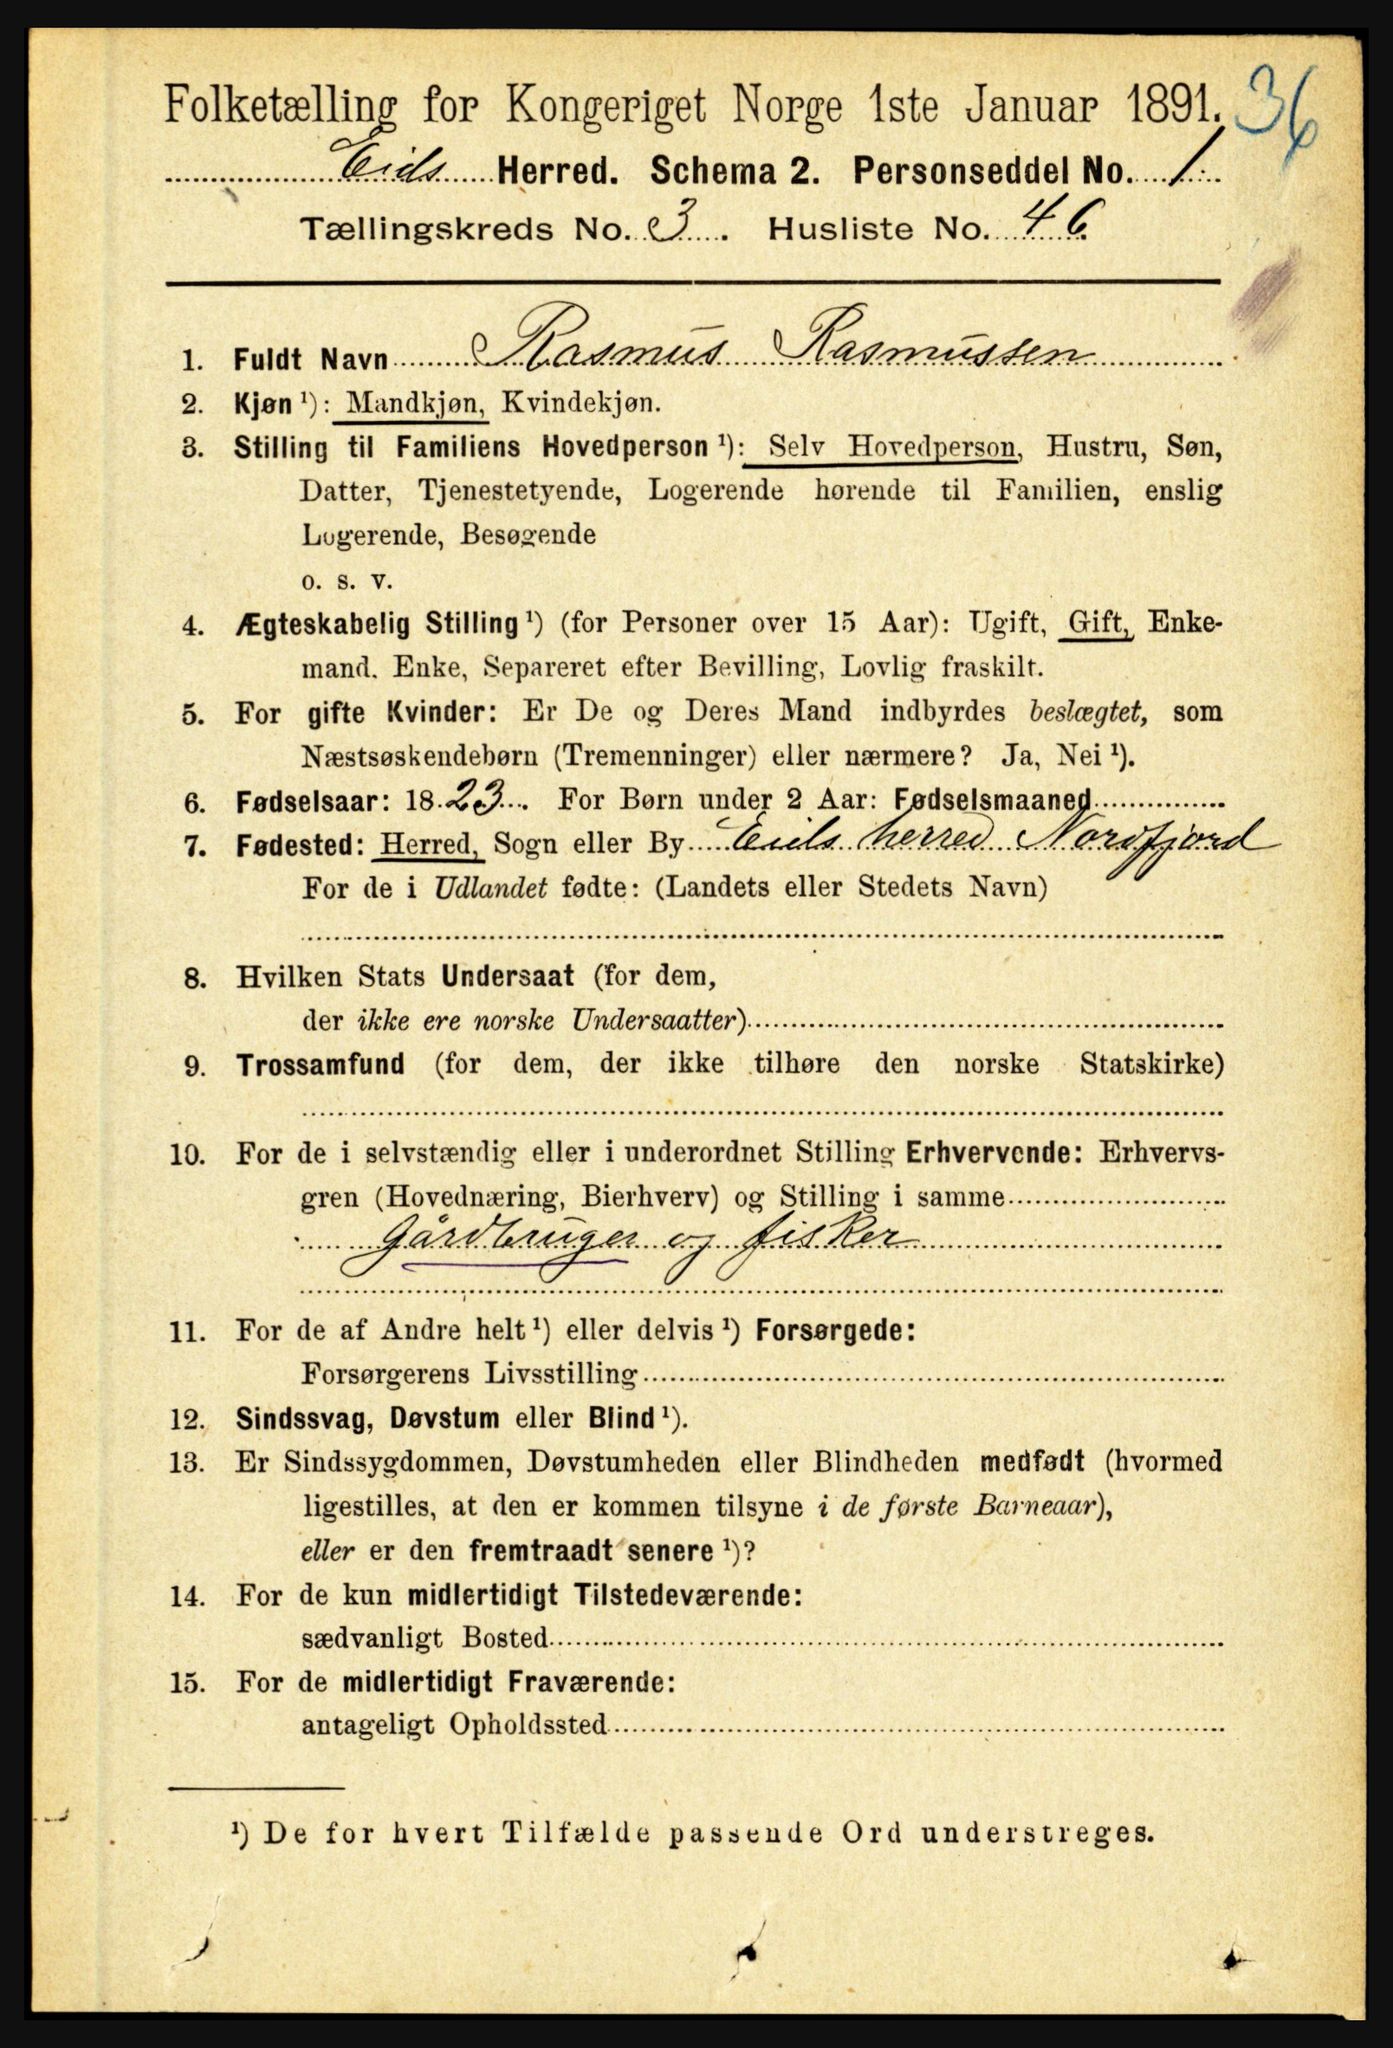 Folketælling for Kongeriget Norge 1ste Januar 1891. 36
Eids Herred. Schema 2. Personseddel No. 1
Tællingskreds No. 3. Husliste No. 46
1. Fuldt Navn Rasmus Rasmussen
2. Kjøn ¹): Mandkjøn, Kvindekjøn.
3. Stilling til Familiens Hovedperson ¹): Selv Hovedperson, Hustru, Søn,
Datter, Tjenestetyende, Logerende hørende til Familien, enslig
Logerende, Besøgende
o. s. v.
4. Ægteskabelig Stilling ¹) (for Personer over 15 Aar): Ugift, Gift, Enke-
mand, Enke, Separeret efter Bevilling, Lovlig fraskilt.
5. For gifte Kvinder: Er De og Deres Mand indbyrdes beslægtet, som
Næstsøskendebørn (Tremenninger) eller nærmere? Ja, Nei ¹).
6. Fødselsaar: 1823. For Børn under 2 Aar: Fødselsmaaned
7. Fødested: Herred, Sogn eller By Eids herred Nordfjord
For de i Udlandet fødte: (Landets eller Stedets Navn)
8. Hvilken Stats Undersaat (for dem,
der ikke ere norske Undersaatter)
9. Trossamfund (for dem, der ikke tilhøre den norske Statskirke)
10. For de i selvstændig eller i underordnet Stilling Erhvervende: Erhvervs-
gren (Hovednæring, Bierhverv) og Stilling i samme
Gårdbruger og fisker
11. For de af Andre helt ¹) eller delvis ¹) Forsørgede:
Forsørgerens Livsstilling
12. Sindssvag, Døvstum eller Blind ¹).
13. Er Sindssygdommen, Døvstumheden eller Blindheden medfødt (hvormed
ligestilles, at den er kommen tilsyne i de første Barneaar),
eller er den fremtraadt senere ¹)?
14. For de kun midlertidigt Tilstedeværende:
sædvanligt Bosted
15. For de midlertidigt Fraværende:
antageligt Opholdssted
¹) De for hvert Tilfælde passende Ord understreges.